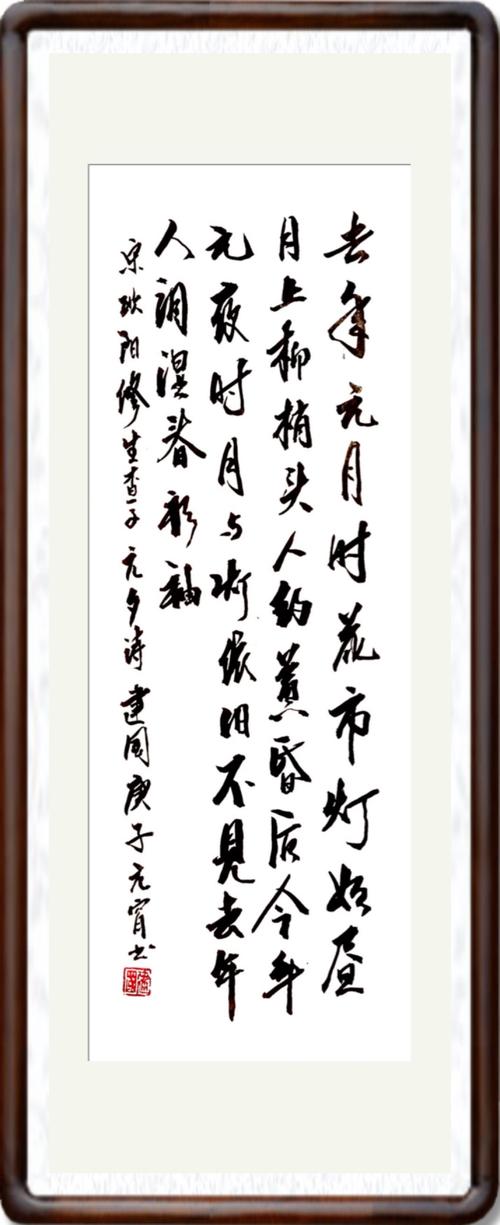 去年元月时花市灯如昼
月上柳梢头人约黄昏后今年
元夜时月与灯依旧不见去年
人泪湿春衫袖
宋欧阳修生查子元夕诗建国庚子元宵书